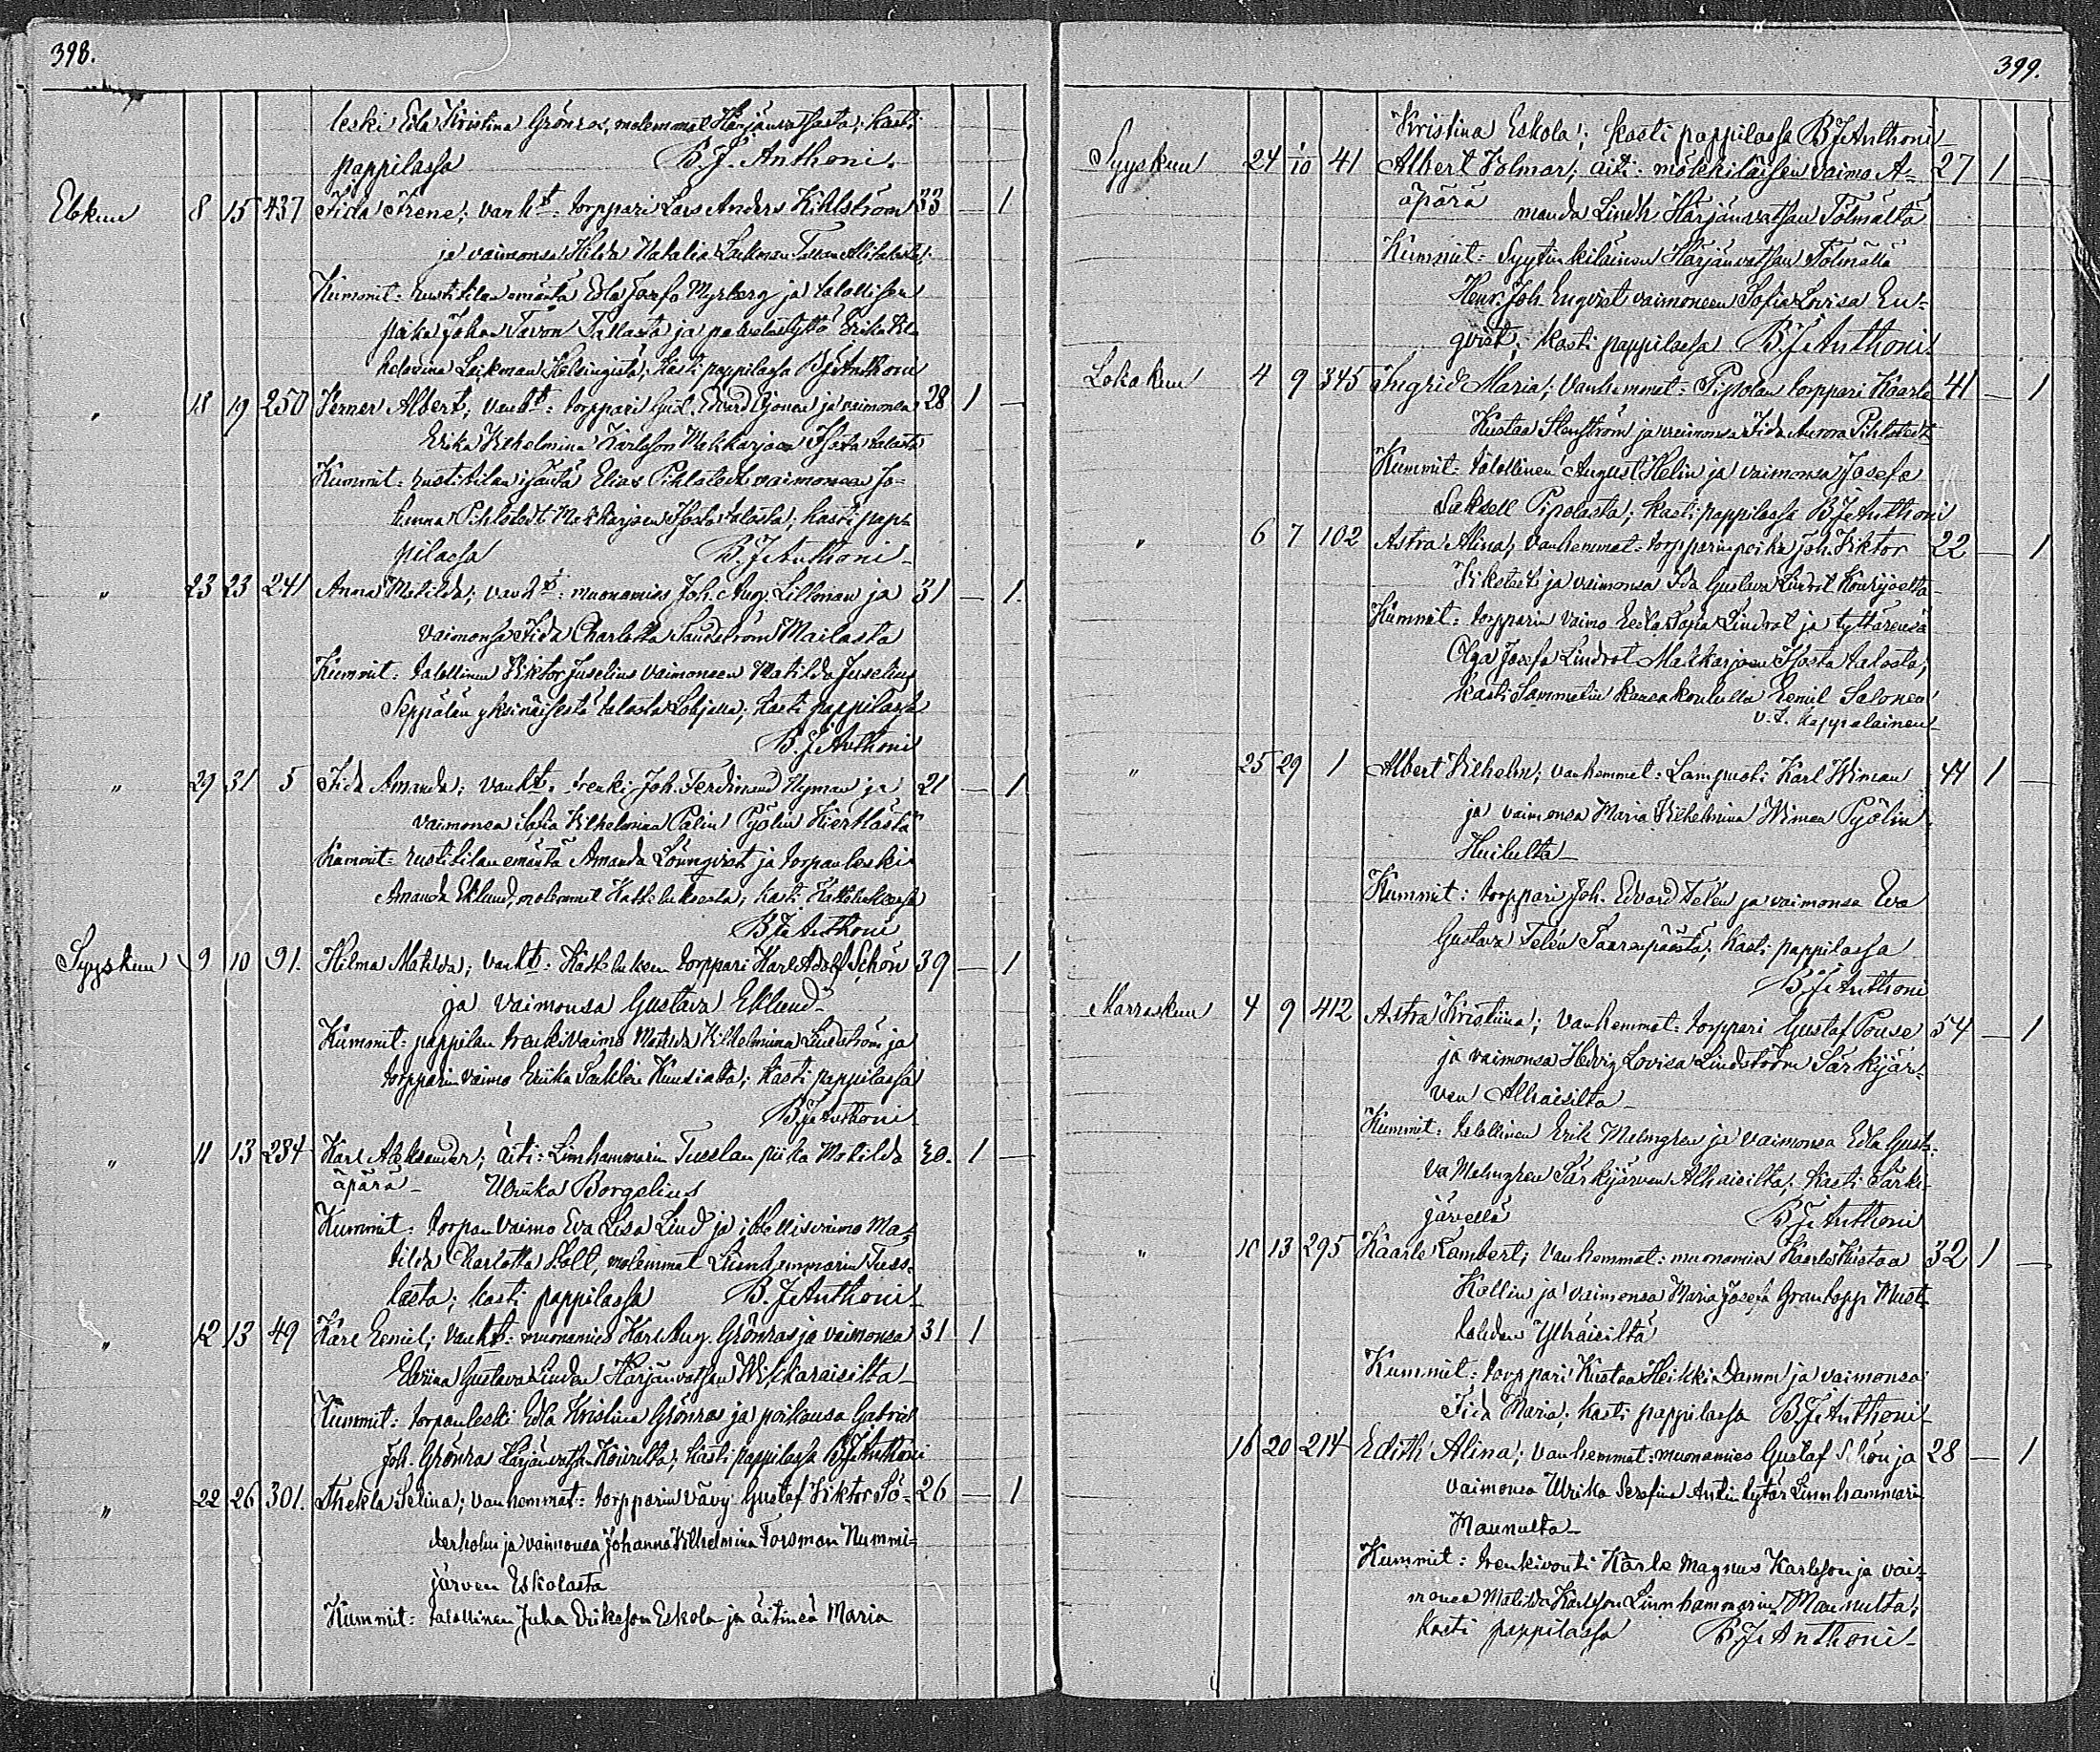 398.
leski Edla Kristina Grönros, molemmat Härjänvatsasta; kasti
pappilassa B.J. Anthoni.
Elokuu 8 15 437 Iida Irene; vanht: torppari Lars Anders Kihlström 33 — 1
ja vaimonsa Hilda Natalia Laikman
Kummit: rustitilan emäntä Edla Josefa Myrberg ja talollisen
poika Johan Tavon Tallasta ja palvelustyttö Erika Wil-
helmina Laikman Helsingistä; kasti pappilassa B.J. Anthoni
" 18 19 250 Verner Albert; vanht: torppari Edvard ja vaimonsa 28 1 —
Erika Wilhelmina Karlsson talosta
Kummit: rustitilan isäntä Elias Pihlstedt vaimoneen Jo-
hanna Pihlstedt talosta; kasti pap-
pilassa B.J. Anthoni
" 23 23 241 Anna Matilda; vanht: muonamies Joh. Aug. Lillman ja 31 — 1.
vaimonsa Iida Charlotta Sandström Mailasta
Kummit: talollinen Viktor Juselius vaimoneen Matilda Juselius
Seppälän yksinäisestä talosta Lohjalla; kasti pappilassa
B.J. Anthoni
" 29 31 5 Iida Amanda; vanht: renki Joh. Ferdinand Nyman ja 21 — 1
vaimonsa Sofia Wilhelmina Palin Pyölin
Kummit: rustitilan emäntä Amanda Lönnqvist ja torpan leski
Amanda Eklund, molemmat; kasti
B.J. Anthoni
Syyskuu 9 10 91. Hilma Matilda; vanht: torppari Karl Adolf Schön 39 — 1
ja vaimonsa Gustava Eklund
Kummit: pappilan renkivaimo Matilda Wilhelmina Lindström ja
torpparin vaimo Eriika; kasti pappilassa
B.J. Anthoni
" 11 13 284 Karl Aleksander; äiti: Linhammarin piika Matilda 30. 1 —
äpärä Ulriika Borgelius
Kummit: torpan vaimo Eva Lisa Lind ja itsellisvaimo Ma-
tilda Charlotta, molemmat Linhammarin Tuss-
lasta; kasti pappilassa B.J. Anthoni
" 12 13 49 Karl Eemil; vanht: muonamies Karl Aug. Grönros ja vaimonsa 31 1
Gustava Linden Härjänvatsan
Kummit: torpan leski Edla Kristina Grönros ja poikansa Gabriel
Joh. Grönros Härjänvatsan; kasti pappilassa B.J. Anthoni
" 22 26 301. Thekla Selina; vanhemmat: torpparin vävy Gustaf Viktor Sö- 26 — 1
derholm ja vaimonsa Johanna Wilhelmina Forsman Nummi-
järven Eskolasta
Kummit: talollinen Juha Eriksson Eskola ja äitinsä Maria
399.
Kristina Eskola; kasti pappilassa B.J. Anthoni
Syyskuu 24 1/10 41 Albert Volmar; äiti: mäkiläisen vaimo A- 27 1 —
äpärä manda Lindh Härjänvatsan Tölmältä
Kummit: Syytinkiläinen Härjänvatsan
Henr. Joh. Enqvist vaimoneen Sofia Lovisa En-
qvist; kasti pappilassa B.J. Anthoni
Lokakuu 4 9 345 Ingrid Maria; Vanhemmat: torppari Kaarle 41 — 1
Kustaa Stenström ja vaimonsa Iida Aurora Pihlstedt
Kummit: talollinen August Helin ja vaimonsa Josefa
Saksell; kasti pappilassa B.J. Anthoni
" 6 7 102 Astra Alina; Vanhemmat: torpparin poika Joh. Viktor 22 — 1
ja vaimonsa Ida Gustava Lindrot
Kummit: torpparin vaimo Eedla Sofia Lindrot ja tyttärensä
Olga Josefa Lindrot talosta;
kasti Sammatin kansakoululla Eemil Salonen
v.t. kappalainen
" 25 29 1 Albert Vilhelm; vanhemmat: Lampuoti Karl Wiman 44 1 —
ja vaimonsa Maria Vilhelmina Wiman Pyölin
Huhulta
Kummit: torppari Joh. Edvard Telén ja vaimonsa Eva
Gustava Telén Saarenpäästä; kasti pappilassa
B.J. Anthoni
Marraskuu 4 9 412 Astra Kristiina; Vanhemmat: torppari Gustaf Pouse 34 — 1
ja vaimonsa Hedvig Lovisa Lindström Särkijär-
ven Alhaisilta
Kummit: talollinen Erik Malmgren ja vaimonsa Edla Gusta-
va Malmgren Särkijärven Alhaisilta; Kasti Särki-
järvellä B.J. Anthoni
" 10 13 295 Kaarle Lambert; Vanhemmat: muonamies Kaarle Kustaa 32 1 —
Kollin ja vaimonsa Maria Josefa Grantopp Must-
lahden Ylhäisiltä
Kummit: torppari Kustaa Heikki Damm ja vaimonsa
Iida Maria; kasti pappilassa B.J. Anthoni
16 20 214 Edith Alina; Vanhemmat: muonamies Gustaf Schön ja 28 — 1
vaimonsa Ulrika Serafina Antintytär Linnhammarin
Maunulta
Kummit: renkivouti Karle Magnus Karlsson ja vai-
monsa Matilda Karlsson Linnhammarin Maunulta;
kasti pappilassa B.J. Anthoni